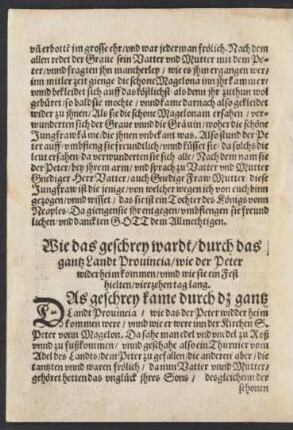 vñ erbottē jm grosse ehr/ vnd war jederman frölich. Nach dem
allen redet der Graue sein Vatter vnd Mutter mit dem Pe-
ter/ vnnd fragten jhn mancherley/ wie es jhm ergangen wer/
inn mitler zeit gienge die schöne Magelona inn jhr kammer/
vnnd bekleidet sich auff das köstlichst als denn jhr zuthun wol
gebüret/ so bald sie mochte/ vnnd kame darnach also gekleidet
wider zu jhnen/ Als sie die schöne Magelonam ersahen/ ver-
wunderten sich der Graue vnnd die Gräuin/ woher die schöne
Jungfraw käme/ die jhnen vnbekant was. Also stund der Pe
ter auff/ vmbfieng sie freundtlich/ vnnd küsset sie/ da solchs die
leut ersahen/ da verwunderten sie sich alle/ Nach dem nam sie
der Peter/ bey jhrem arm/ vnd sprach zu Vatter vnd Mutter
Gnediger Herr Vatter/ auch Gnedige Fraw Mutter/ diese
Jungfraw ist die jenige/ von welcher wegen ich von euch binn
gezogen/ vnnd wisset/ das sie ist ein Tochter des Königs vonn
Neaples/ Da giengen sie jhr entgegen/ vmbfiengen sie freund
lichen/ vnd danckten GOTT dem Allmechtigen.
Wie das geschrey wardt/ durch das
gantz Landt Prouincia/ wie der Peter
wider heim kommen/ vnnd wie sie ein Fest
hielten/ vierzehen tag lang.
DAs geschrey kame durch dz gantz
Landt Prouincia/ wie das der Peter widder heim
kommen were/ vnnd wie er were inn der Kirchen S.
Peter vonn Magelon. Da sahe man edel vnd vnedel zu Roß
vnnd zu fußkommen/ vnnd geschahe also ein Thurnier vom
Adel des Landts/ dem Peter zu gefallen/ die anderen aber/ die
tantzten vnnd waren frölich/ da nun Vatter vnnd Mutter/
gehöret hetten das vnglück jhres Sons/ desgleichenn der
schonen